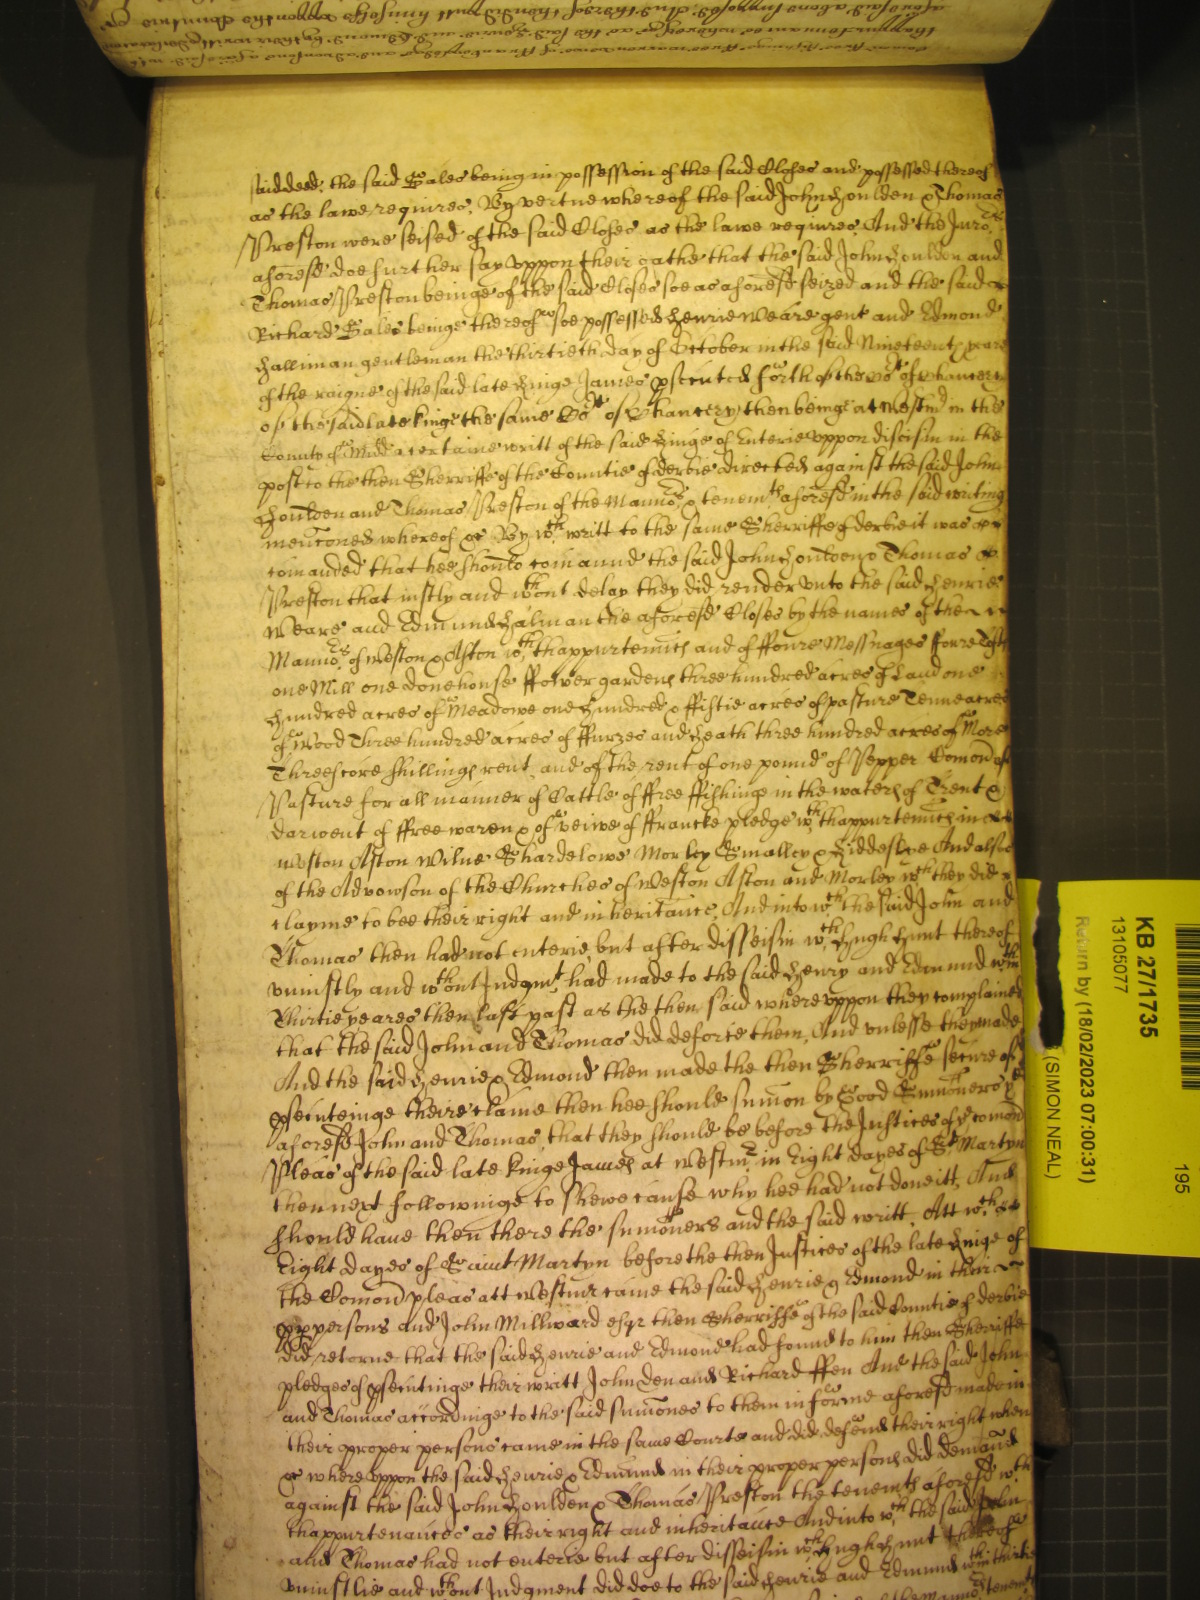 said deed, the said Sales being in possession of the said Closes and possessed thereof
as the lawe requires. By vertue whereof the said John Houlden & Thomas
Preston were seised of the said Closes as the lawe requires. And the Juro.rs
aforesd doe further say vppon their oathe that the said John Houlden and
Thomas Preston beinge of the said Closes soe as aforesd seized and the said
Richard Sales beinge thereof soe possessed Henrie Weare gent and Edmond
Halliman gentleman the thirtieth day of October in the said Nineteenth yeare
of the raigne of the said late Kinge James psecuted forth of the Cort of Chancery
of the said late kinge the same Cort of Chancery then beinge at Westm in the
County of Midd a certaine writt of the said Kinge of Enterie vppon disseisin in the
post to the then Sherriffe of the Countie of derbie directed against the said John
Houlden and Thomas Preston of the Manno.rs & tenemts aforesd in the said writing
menconed whereof &c By wch writt to the same Sherriffe of derbie it was
comanded that hee should comaund the said John Houlden & Thomas
Preston that iustly and wthout delay they did render vnto the said Henrie
Weare and Edmund Halman the aforesd Closes by the names of the
Manno.rs of Weston & Aston wth thappurtenncs and of ffoure Messuages ffoure Tofts
one Mill one dovehouse ffower gardens three hundred acres of Land one
hundred acres of Meadowe one hundred & ffiftie acres of pasture Tenne acres
of Wood Three hundred acres of ffurzes and heath three hundred acres of More
Threescore shillings rent, and of the rent of one pound of Pepper Comon of
Pasture for all manner of Cattle of ffree ffishinge in the waters of Trent &
darwent of ffree waren & of veiwe of ffrancke pledge wth thappurtenncs in
Weston Aston Wilne Shardelowe Morley Smalley & Kiddesley And alsoe
of the Advowson of the Churches of Weston Aston and Morley wch they did
clayme to bee their right and inheritance, And into wch the said John and
Thomas then had not enterie, but after disseisin wch Hugh Hunt thereof
vniustly and wthout Judgmt had made to the said Henry and Edmund wthin
Thirtie yeares then last past as the then said wherevppon they complained
that the said John and Thomas did deforce them, And vnlesse they made
And the said Henrie & Edmond then made the then Sherriffe secure of
psecuteinge theire claime then hee should sumon by Good Sumoners ye
aforesd John and Thomas, that they should be before the Justices of ye comon
Pleas of the said late kinge James at Westmr in Eight dayes of St Martyn
then next followinge to shewe cause why hee had not done itt, And
should haue then there the sumoners and the said writt. Att wch
Eight dayes of Saint Martyn before the then Justices of the late Kinge of
the Comon pleas att Westmr came the said Henrie & Edmond in their
pp persons and John Millward esqr then Sherriffe of the said Countie of derbie
did retorne that the said Henrie and Edmond had found to him then Sherriffe
pledges of psecutinge their writt John Den and Richard ffen And the said John
and Thomas accordinge to the said sumones to them in forme aforesd made in
their proper persons came in the same Courte and did defend their right when
&c where vppon the said Henrie & Edmund in their proper persons did demaund
against the said John Houlden & Thomas Preston the tenemts aforesd wth
thappurtenances as their right and inheritance And into wch the said John
and Thomas had not enterie but after disseisin wch Hugh Hunt thereof
vniustlie and wthout Judgment did doe to the said Henrie and Edmund wthin thirtie
KB 27/1735
13105077
Return by (18/02/2023 07:00:31)
(SIMON NEAL)
195